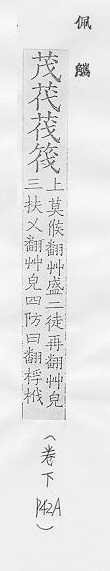 佩觿
茂茷筏
上莫候翻艸盛二徒再翻艸皃
三扶乂翻艸皃四防曰翻桴栰
(卷下 P42A)